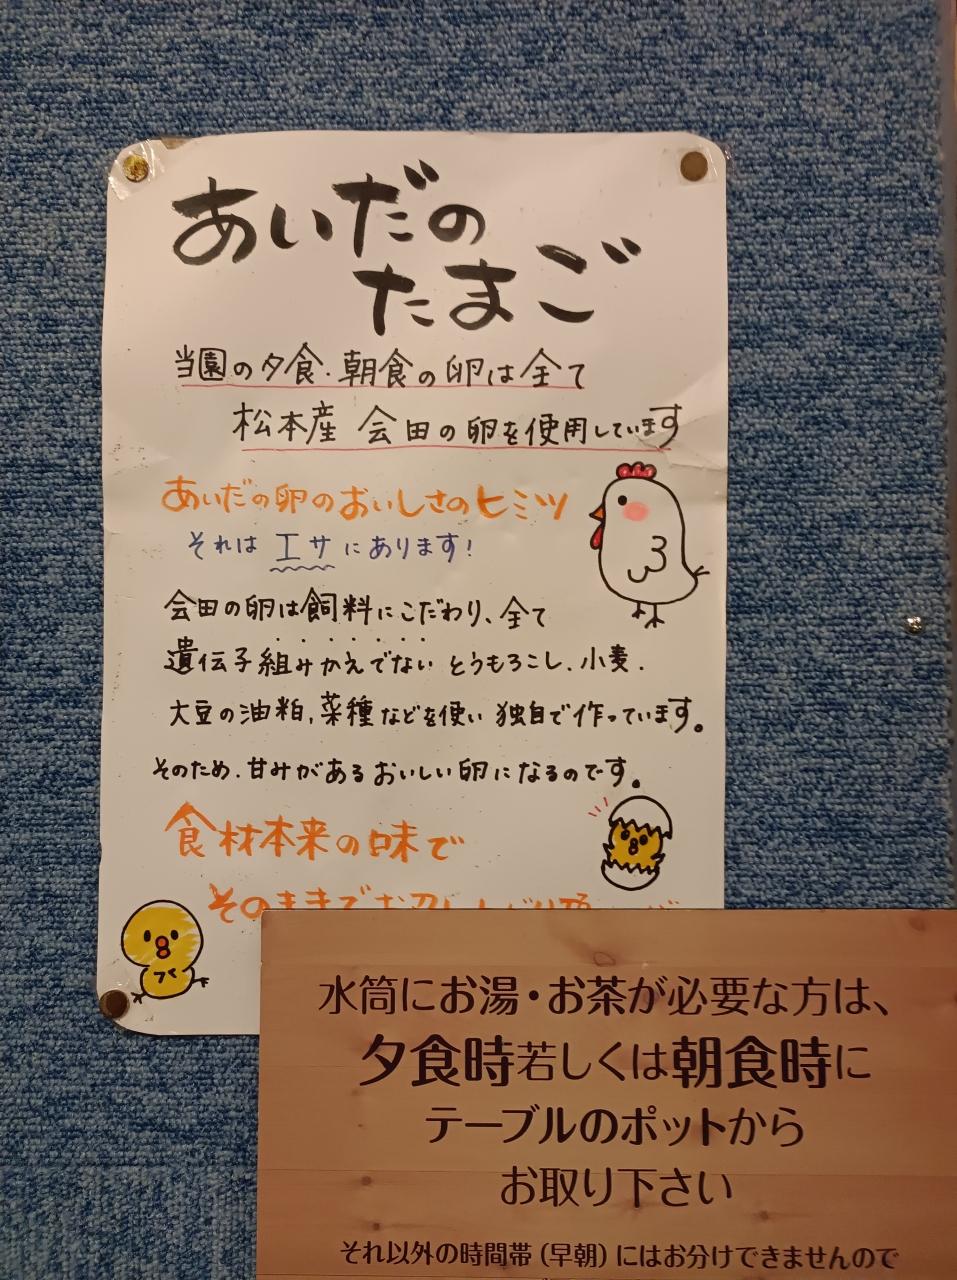 あいだの
たまご
当園の夕食・朝食の卵は全て
松本産 会田の卵を使用しています
あいだの卵のおいしさのヒミツ
それは エサ にあります!
会田の卵は飼料にこだわり、全て
遺伝子組みかえでない とうもろこし、小麦、
大豆の油粕、菜種などを使い 独自で作っています。
そのため、甘みがあるおいしい卵になるのです。
食材本来の味で
そのままでお召し
水筒にお湯・お茶が必要な方は、
夕食時若しくは朝食時に
テーブルのポットから
お取り下さい
それ以外の時間帯(早朝)にはお分けできませんので